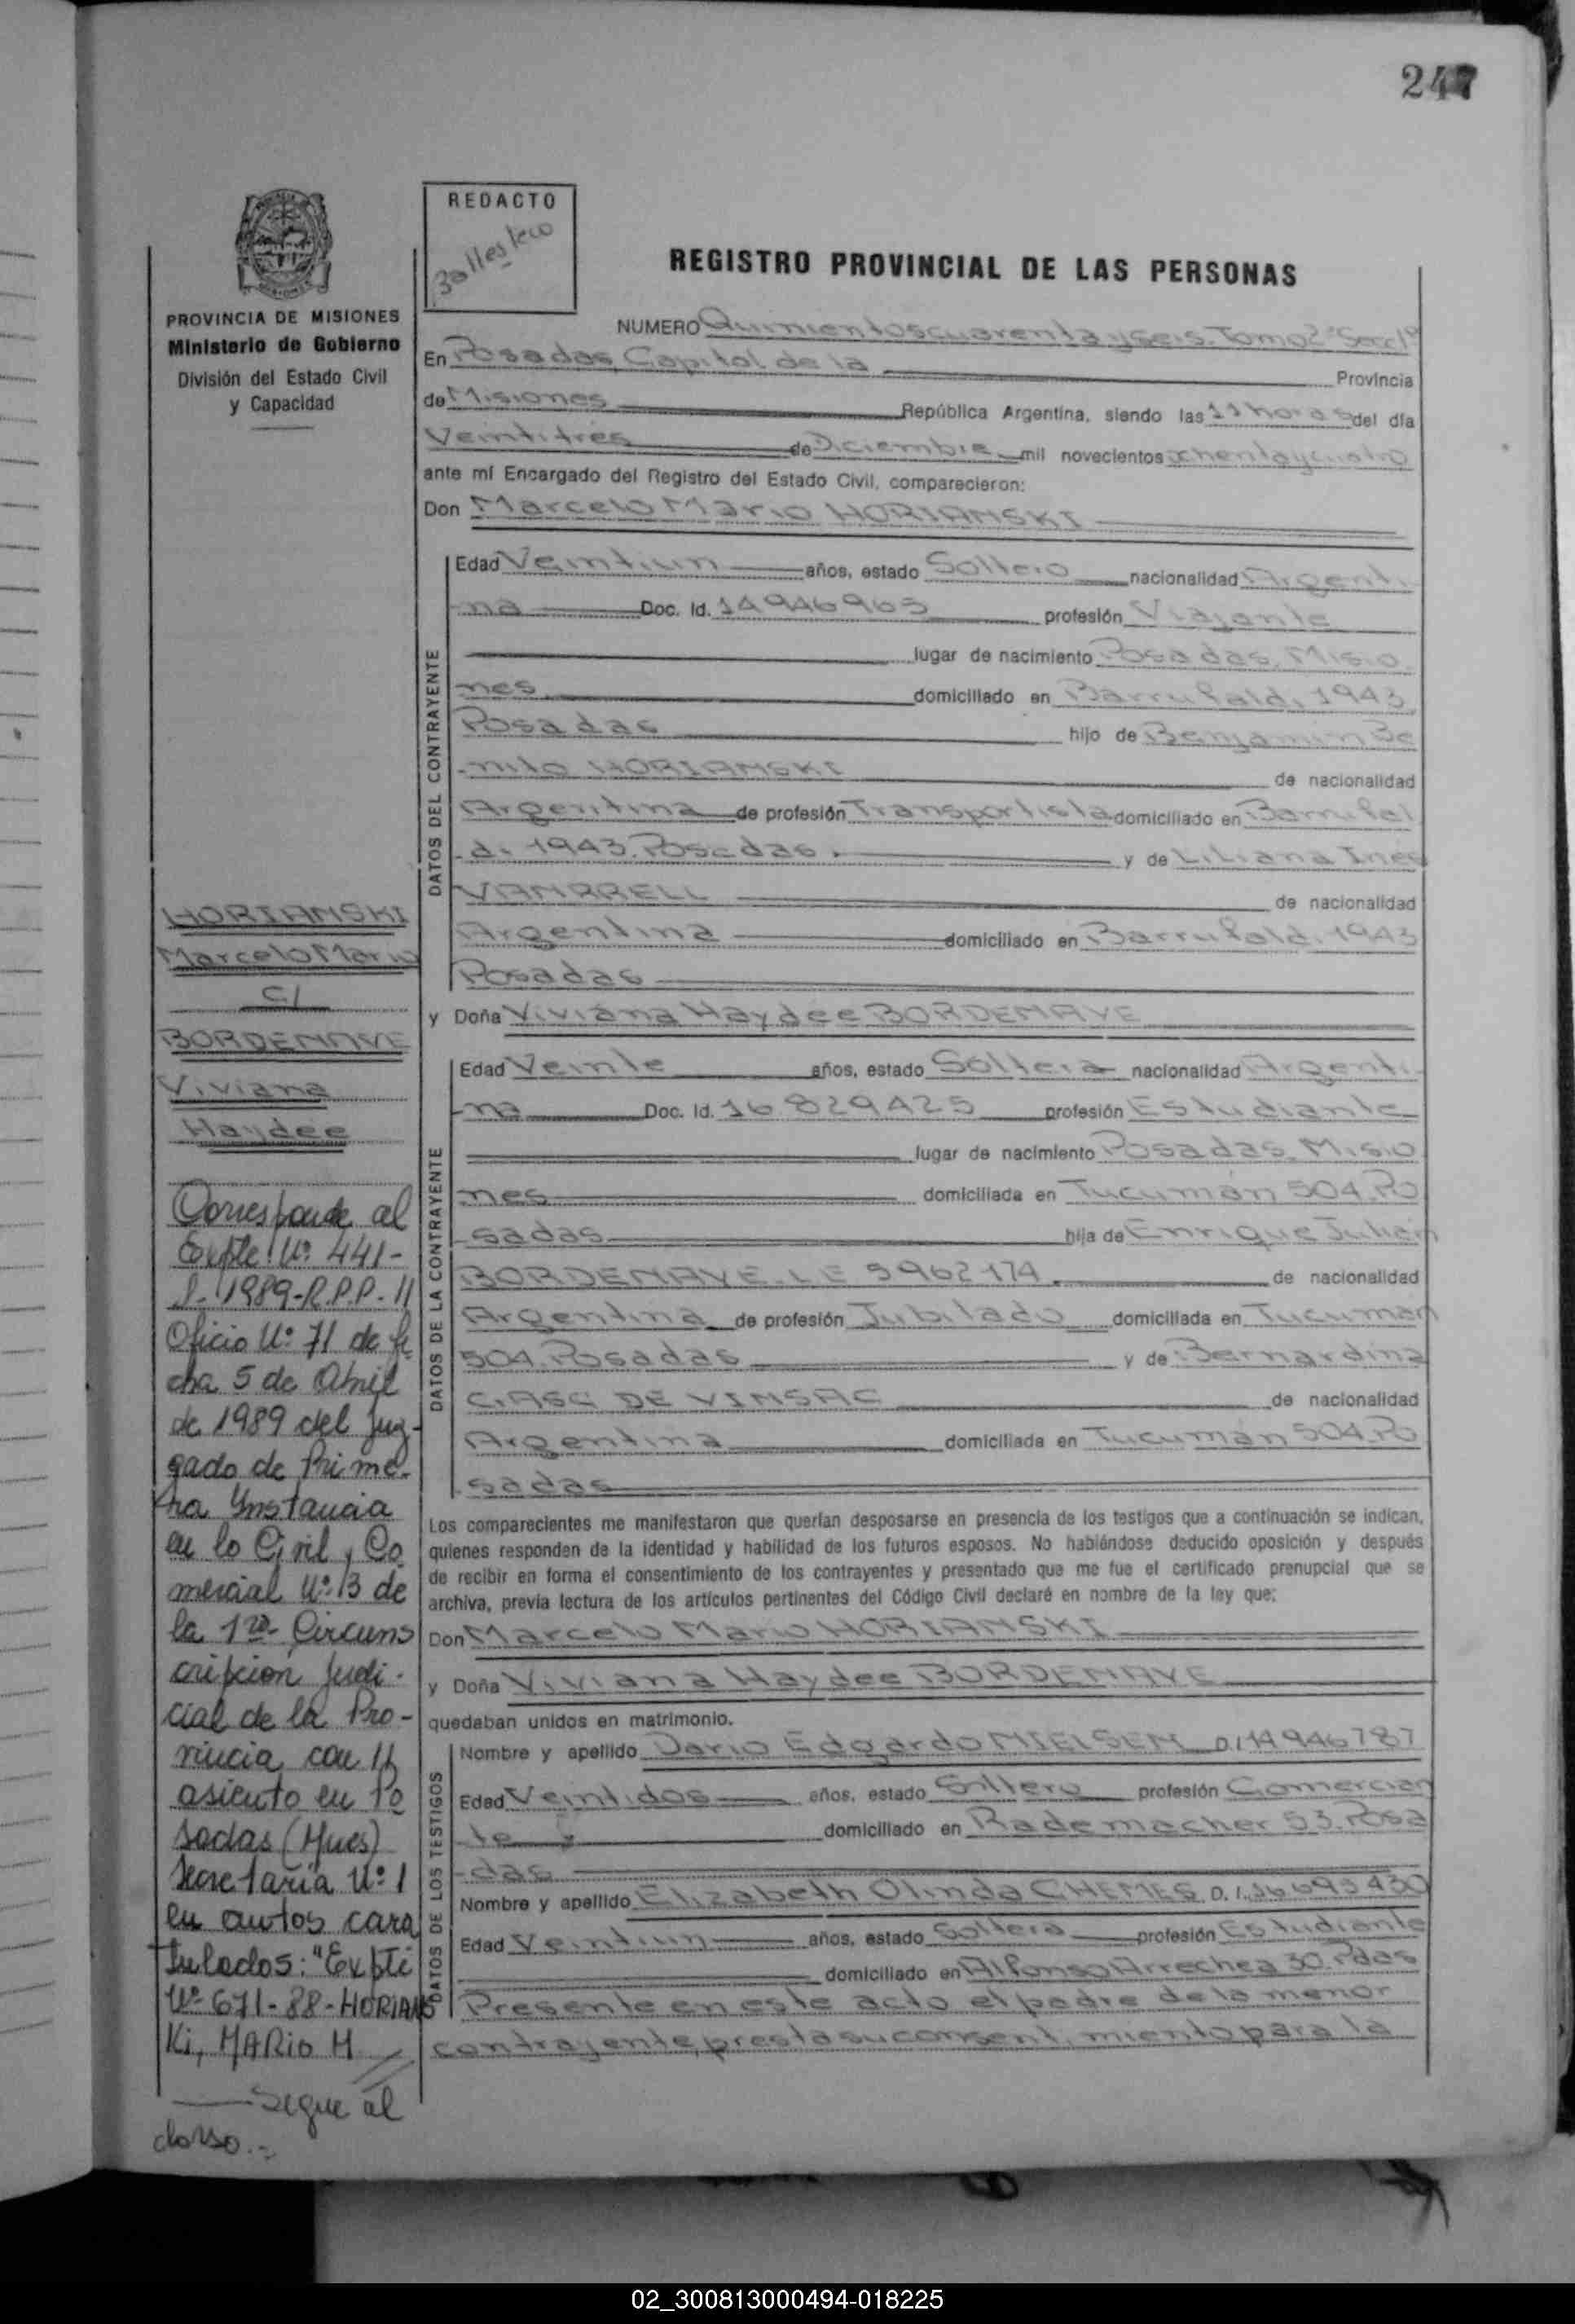 247
REDACTO
Ballesteco
REGISTRO PROVINCIAL DE LAS PERSONAS
PROVINCIA DE MISIONES
Ministerio de Gobierno
División del Estado Civil
y Capacidad
NUMERO Quinientoscuarenta y seis. Tomo2º Secc1º
En Posadas, Capital de la Provincia
de Misiones República Argentina, siendo las 11 horas del día
Veintitres de Diciembre mil novecientos ochenta y cuatro
ante mí Encargado del Registro del Estado Civil, comparecieron:
Don Marcelo Mario HORIANSKI
DATOS DEL CONTRAYENTE
Edad Veintiun años, estado Soltero nacionalidad Argenti
na Doc. Id. 14946965 profesión Viajante
lugar de nacimiento Posadas, Misio
nes domiciliado en Barrufaldi 1943
Posadas hijo de Benjamin Be
nito HORIANSKI de nacionalidad
Argentina de profesión Transportista domiciliado en Barrufal
di 1943. Posadas. y de Liliana Ines
VANRRELL de nacionalidad
Argentina domiciliado en Barrufaldi 1943
Posadas
y Doña Viviana Haydee BORDENAVE
DATOS DE LA CONTRAYENTE
Edad Veinte años, estado Soltera nacionalidad Argenti
na Doc. Id. 16829425 profesión Estudiante
lugar de nacimiento Posadas, Misio
nes domiciliada en Tucumán 504. Po
sadas hija de Enrique Julian
BORDENAVE. LE 5962174. de nacionalidad
Argentina de profesión Jubilado domiciliada en Tucuman
504. Posadas y de Bernardina
DE de nacionalidad
Argentina domiciliada en Tucumán 504. Po
sadas
Los comparecientes me manifestaron que querían desposarse en presencia de los testigos que a continuación se indican,
quienes responden de la identidad y habilidad de los futuros esposos. No habiéndose deducido oposición y después
de recibir en forma el consentimiento de los contrayentes y presentado que me fue el certificado prenupcial que se
archiva, previa lectura de los artículos pertinentes del Código Civil declaré en nombre de la ley que:
Don Marcelo Mario HORIANSKI
y Doña Viviana Haydee BORDENAVE
quedaban unidos en matrimonio.
DATOS DE LOS TESTIGOS
Nombre y apellido Dario Edgardo NIELSEN D.I 14946787
Edad Veintidos años, estado Soltero profesión Comercian
te domiciliado en Rademacher 53. Posa
das
Nombre y apellido Elizabeth Olinda CHEMES D.I. 16695430
Edad Veintiun años, estado Soltera profesión Estudiante
domiciliado en Alfonso Arrechea 30. Pdas
Presente en este acto el padre de la menor
contrayente, presta su consentimiento para la
HORIANSKI
Marcelo Mario
C/
BORDENAVE
Viviana
Haydee
Corresponde al
Expte. Nº 441-
1989-R.P.P.-//
Oficio Nº 71 de fe
cha 5 de Abril
de 1989 del Juz-
gado de Prime-
ra Ynstancia
en lo Civil y Co
mercial Nº 3 de
la 1ra Circuns
cripción Judi-
cial de la Pro-
vincia, con
asiento en Po
sadas (Mnes)
Secretaria Nº 1
en autos cara
tulados: "Expte
Nº 671-88-HORIANS
Ki, MARIO M //
Sigue al
dorso.-
02_300813000494-018225